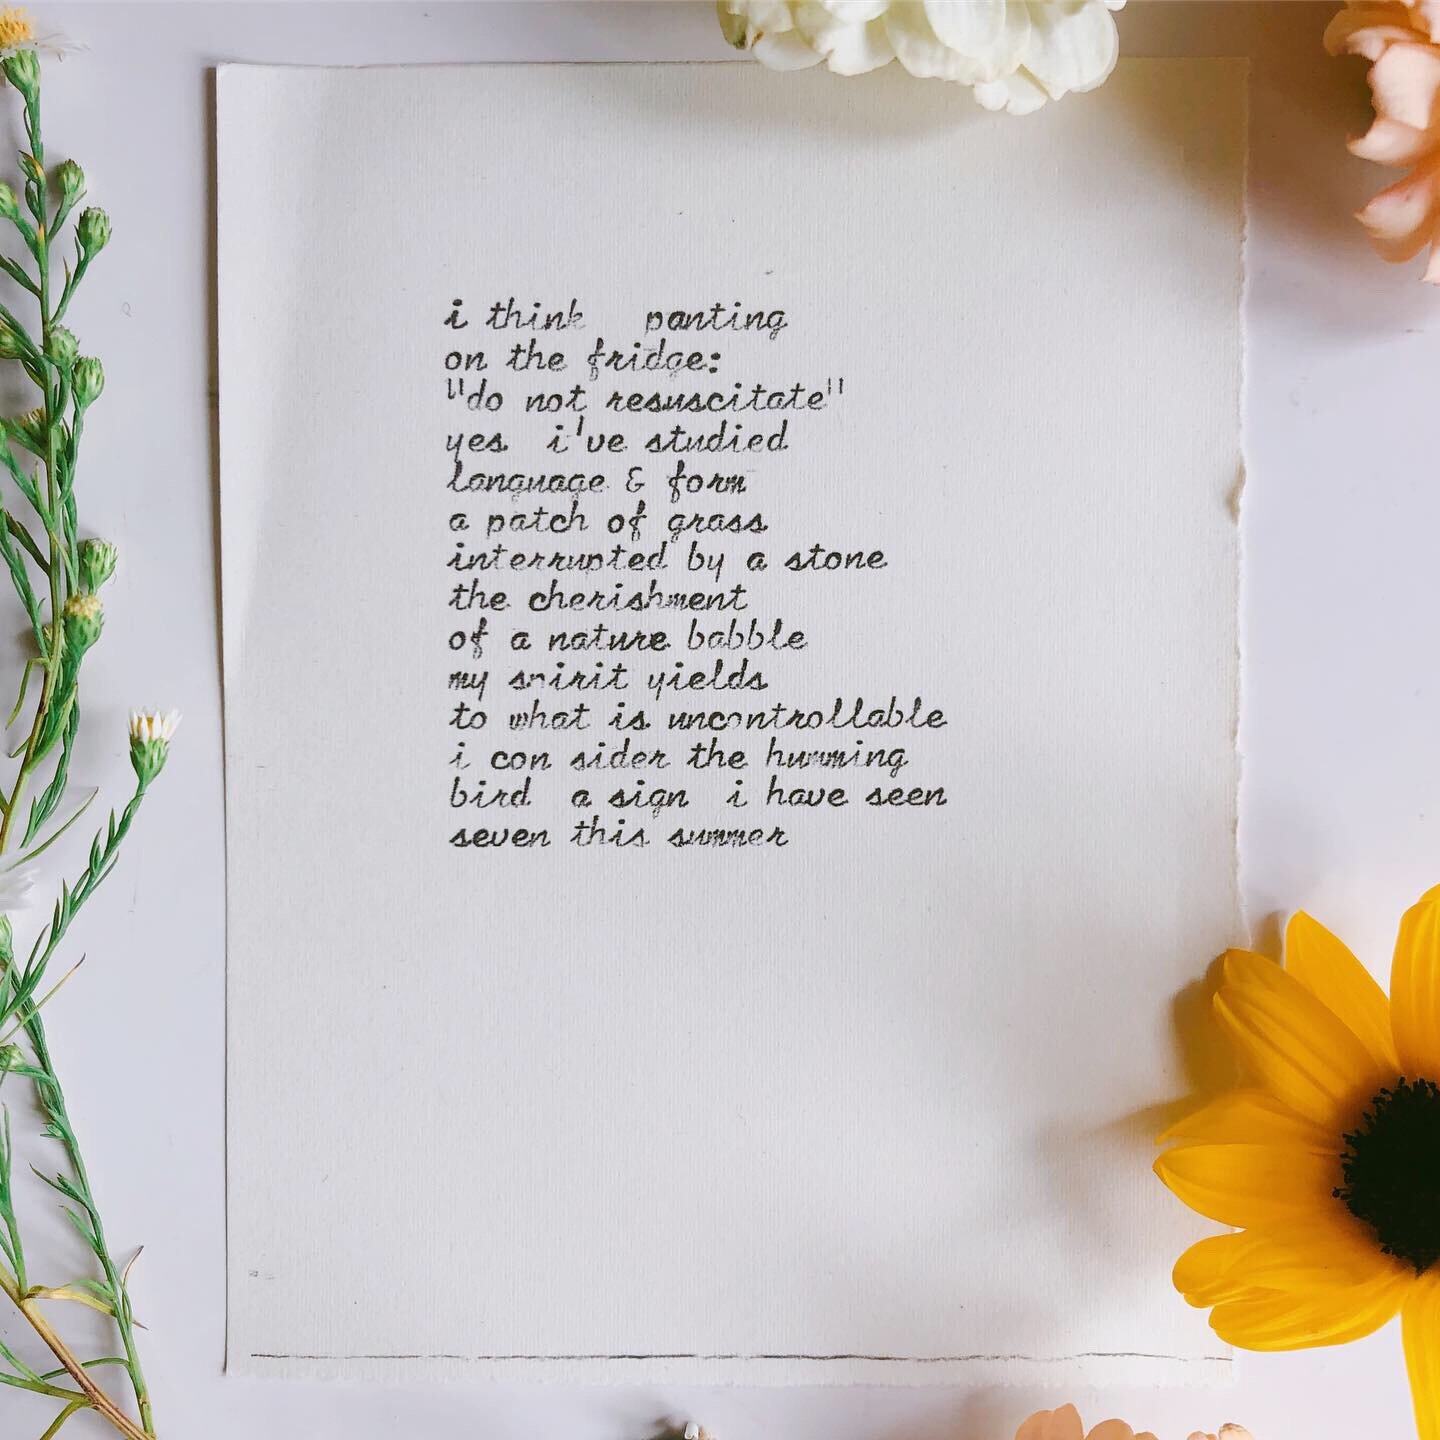 i think   panting
on the fridge:
"do not resuscitate"
yes  i've studied
language & form
a patch of grass
interrupted by a stone
the cherishment
of a nature babble
my spirit yields
to what is uncontrollable
i con sider the humming
bird  a sign  i have seen
seven this summer